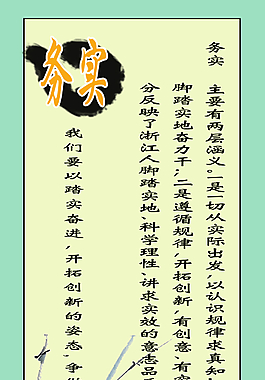 务实
务实
主要有两层涵义。一是一切从实际出发,以认识规律求真知,
脚踏实地奋力干;二是遵循规律,开拓创新,有创意、有
分反映了浙江人脚踏实地、科学理性、讲求实效的意志品
我们要以踏实奋进,开拓创新的姿态,争